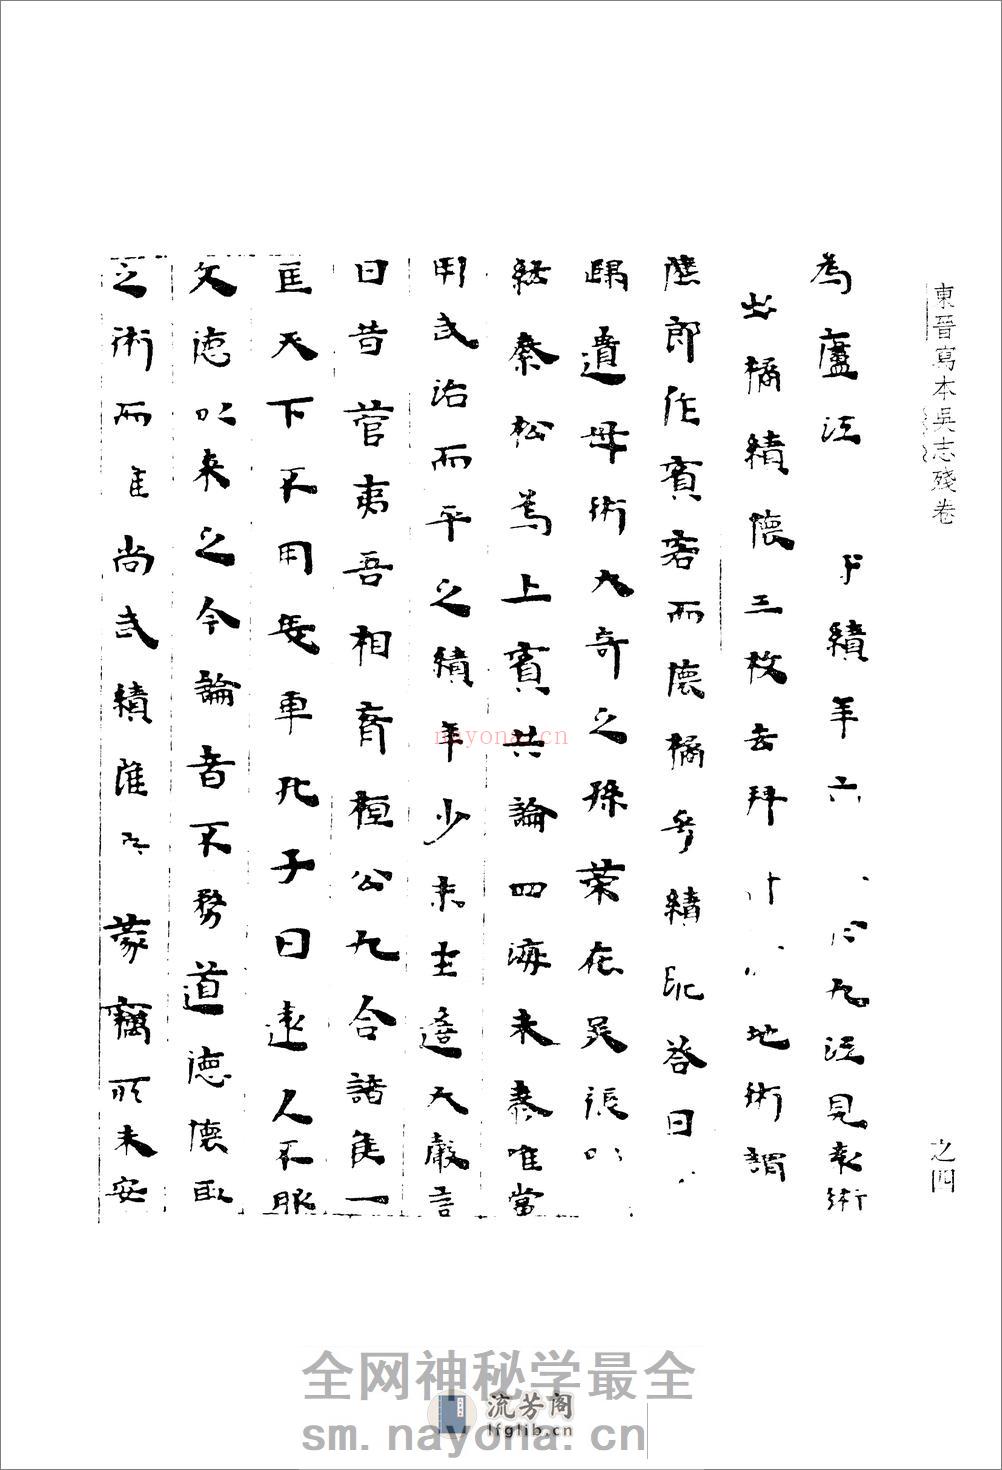 東晉寫本吳志殘卷
之四
為廬江 績年六 九江見袁術
出橘績懷三枚去拜 地術謂
陸郎作賓客而懷橘乎績跪答曰
歸遺母術大奇之孫策在吳張
紘秦松為上賓共論四海未泰唯當
用武治而平之績年少末坐遙大聲言
曰昔管夷吾相齊桓公九合諸侯一
匡天下不用兵車孔子曰遠人不服
文德以來之今論者不務道德懷取
之術而惟尚武績雖 蒙竊所未安
nayona.cn
全网神秘学最全
流芳阁
lfglib.cn
sm.nayona.cn